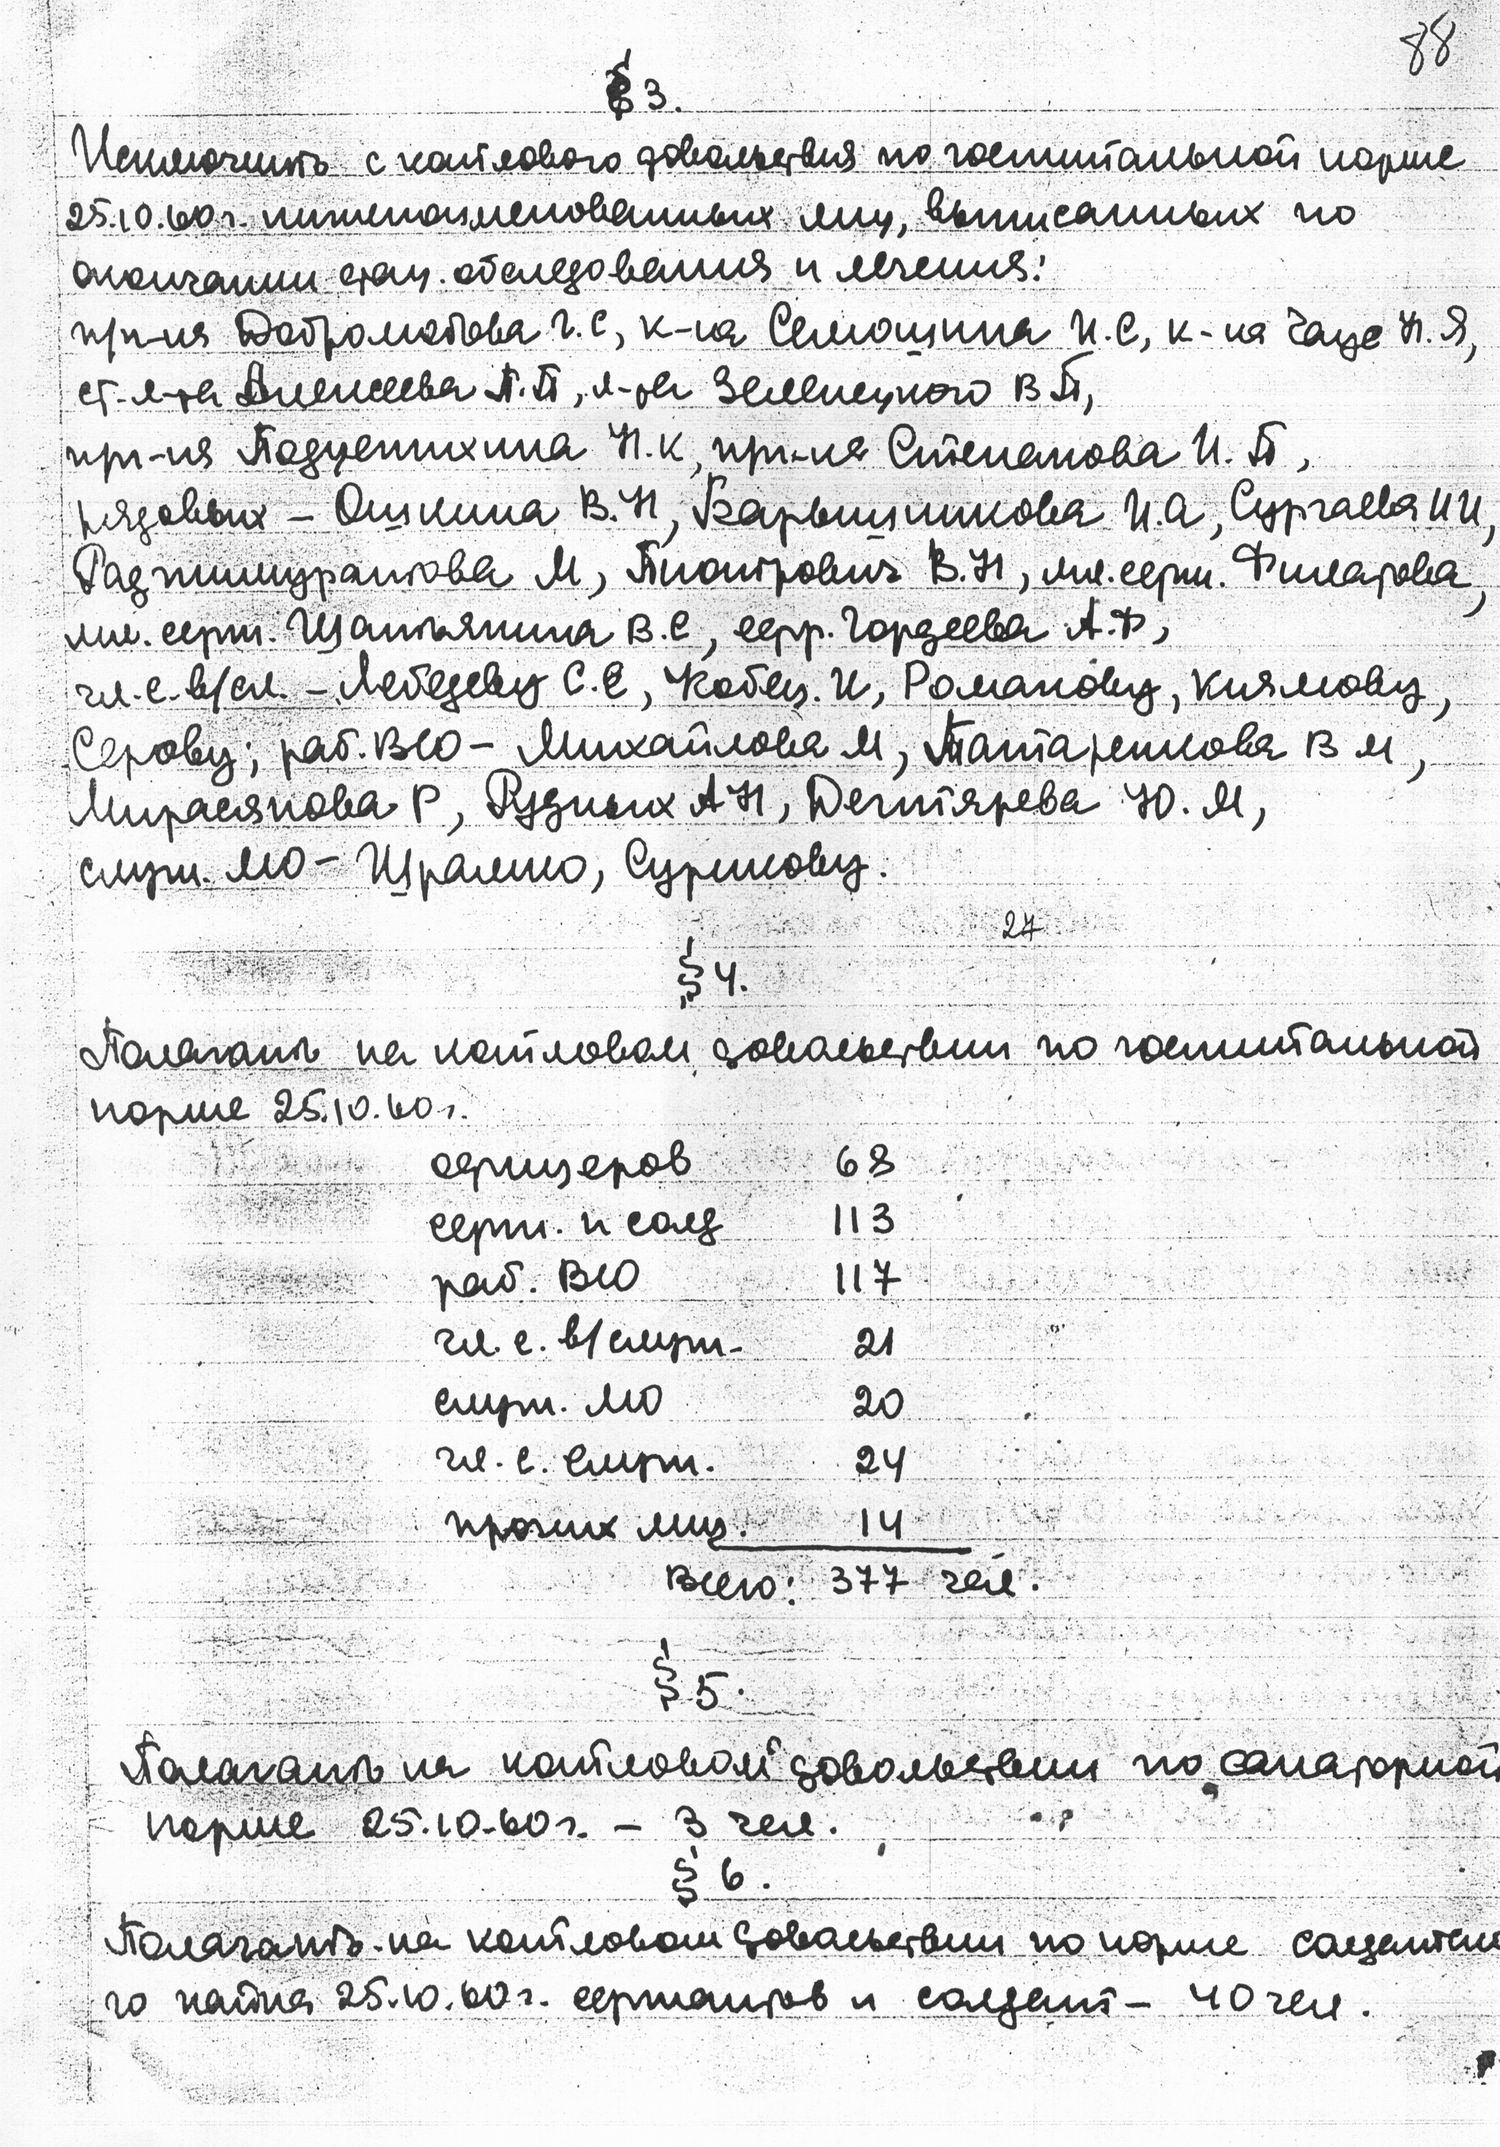 88
§ 3.
Исключить с котлового довольствия по госпитальной норме
25.10.60 г. нижепоименованных лиц, выписанных по
окончании стац. обследования и лечения:
пр-ка Добромотова Г.С, к-на Семошина И.С, к-на Чаус Н.Я,
ст-л-та Алексеева П.П, л-та Зеленецкого В П,
пр-ка Падунтихина Н.К, пр-ка Степанова И. П,
рядовых - Ошкина В.Н, Барышникова И.А, Сургаева И И,
Раджимуратова М, Пиотрович В.Н, мл.серж. Филатова,
мл. серж. Шатьянина В.С, ефр. Гордеева А.Ф,
чл.с.в/сл. - Лебедеву С.Е, Кобец. И, Романову, Киямову,
Серову; раб. ВСО - Михайлова М, Татаренкова В М,
Мирасянова Р, Рудных А Н, Дегтярева Ю. М,
служ. МО - Шрамко, Сурикову.
27
§ 4.
Полагать на котловом довольствии по госпитальной
норме 25.10.60 г.
офицеров 68
серж. и солд 113
раб. ВСО 117
чл. с. в/служ. 21
служ. МО 20
чл. с. служ. 24
прочих лиц. 14
Всего: 377 чел.
§ 5.
Полагать на котловом довольствии по санаторной
норме 25.10.60 г. - 3 чел.
§ 6.
Полагать на котловом довольствии по норме солдатско
го пайка 25.10.60 г. сержантов и солдат - 40 чел.